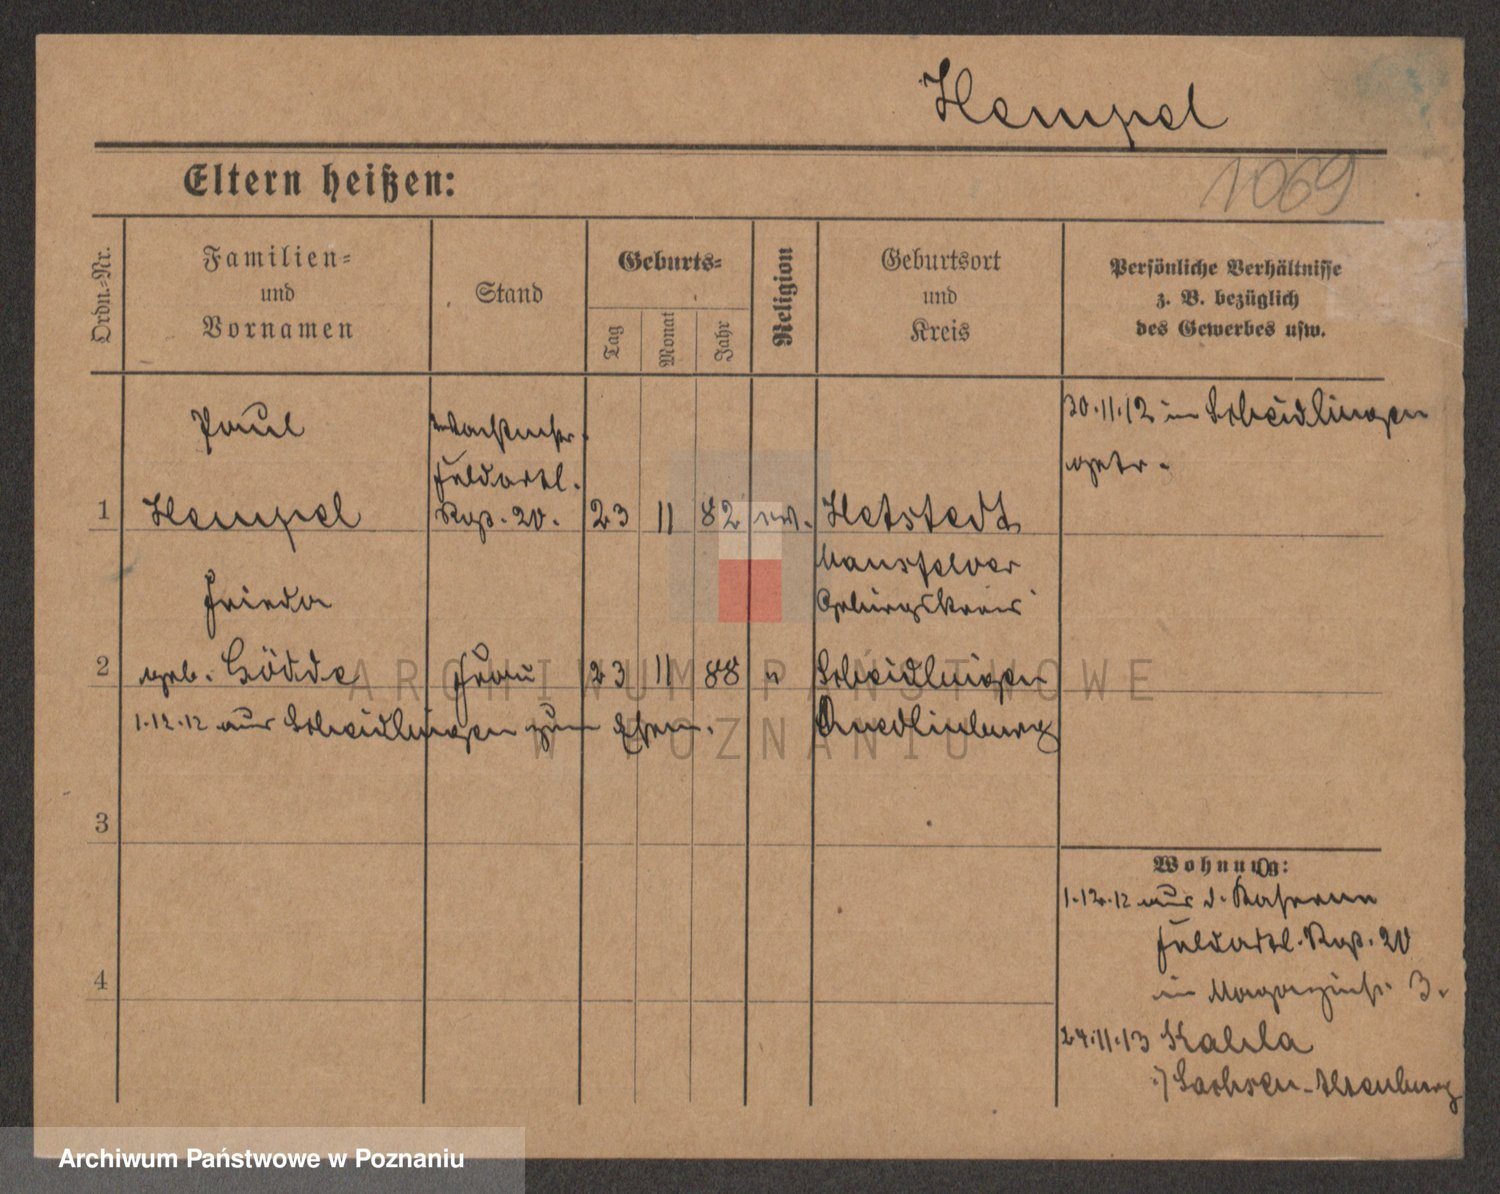 Hempel
Eltern heißen:
1069
Ordn.-Nr.
Familien-
und
Vornamen
Stand
Geburts-
Tag
Monat
Jahr
Religion
Geburtsort
und
Kreis
Persönliche Verhältnisse
z. B. bezüglich
des Gewerbes usw.
Paul
Wachtmstr.
Feldartl.
1 Hempel Rgt. 20. 23 11 82 ev. Hetstedt
30.11.12 in Schneidlingen
getr.
Mansfelder
Gebirgskreis
Frieda
2 geb. Gödde Frau 23 11 88 " Schneidlingen
1.12.12 aus Schneidlingen zum Ehem. Quedlinburg
3
4
Wohnung:
1.12.12 aus d. Kaserne
Feldartl. Rgt. 20
in Magazinstr. 3.
24.11.13 Kahla
i/ Sachsen-Altenburg
ARCHIWUM PAŃSTWOWE
W POZNANIU
Archiwum Państwowe w Poznaniu